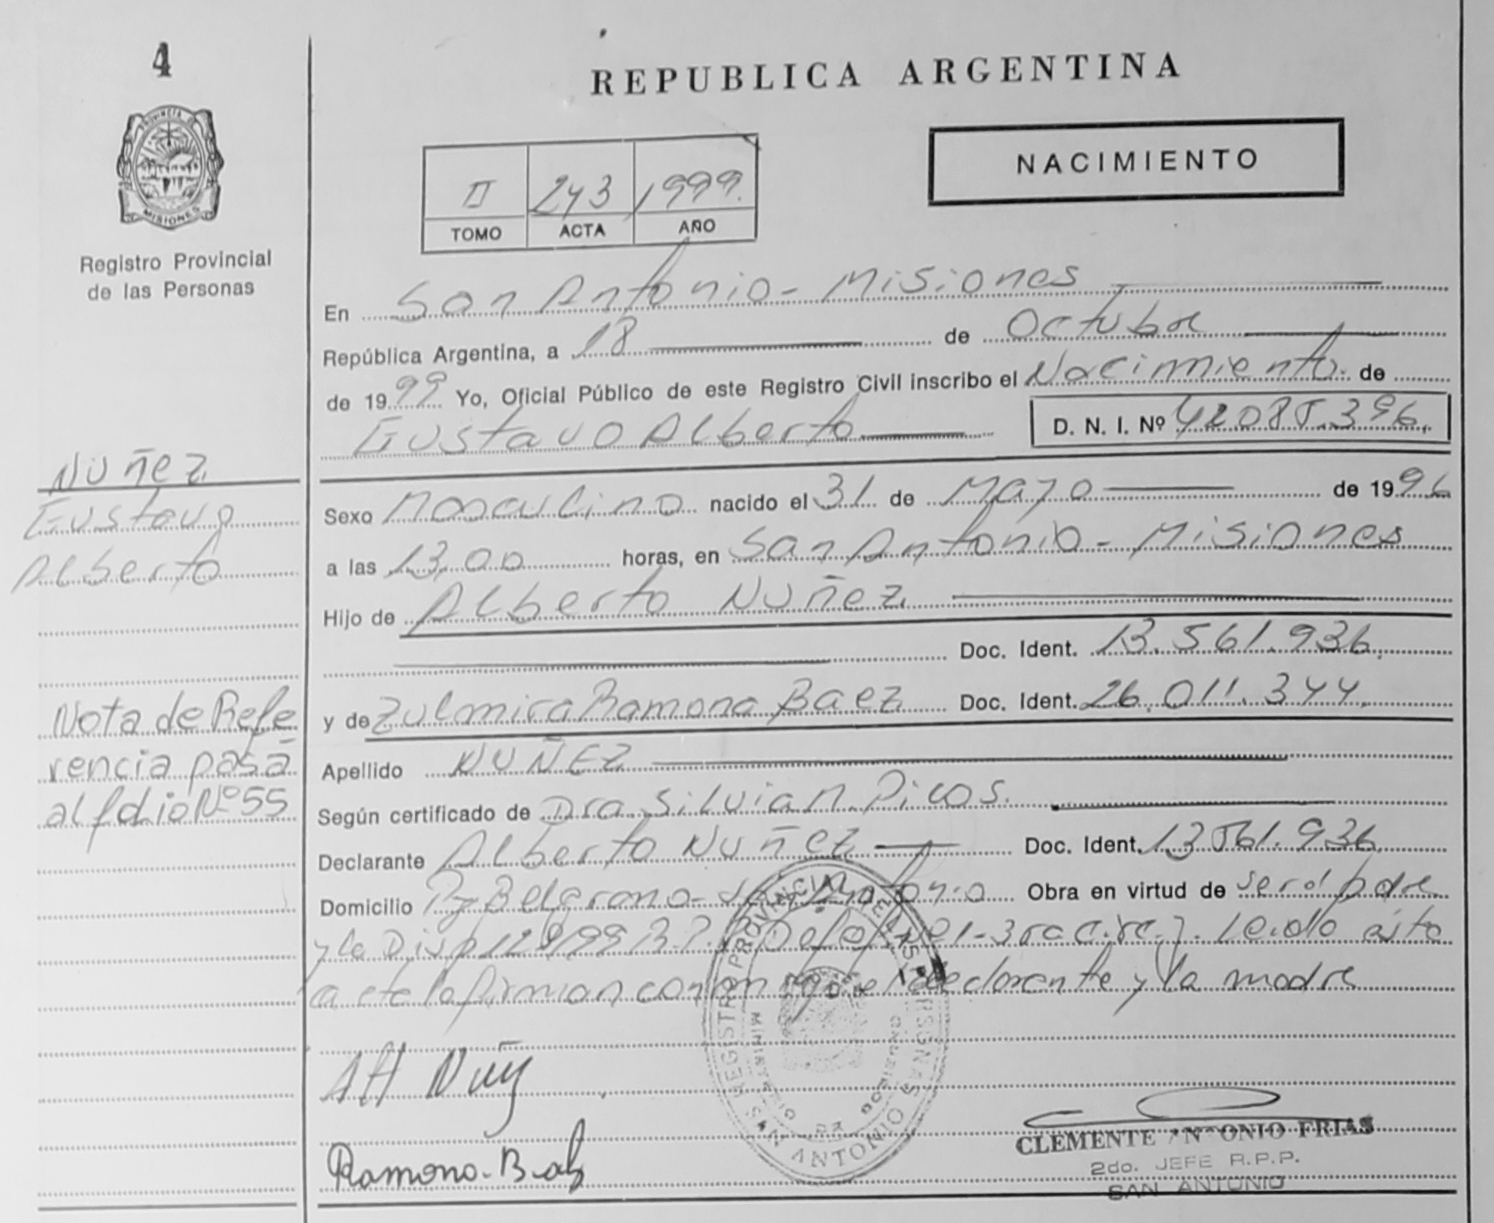 4
REPUBLICA ARGENTINA
PROVINCIA DE
MISIONES
Registro Provincial
de las Personas
II 243 1999.
TOMO ACTA AÑO
NACIMIENTO
En San Antonio - Misiones
República Argentina, a 18 de Octubre
de 1999 Yo, Oficial Público de este Registro Civil inscribo el Nacimiento de
Gustavo Alberto D. N. I. Nº 42.085.396.
Nuñez
Gustavo
Alberto
Sexo Masculino nacido el 31 de Mayo de 1996
a las 13,00 horas, en San Antonio - Misiones
Hijo de Alberto Nuñez
Doc. Ident. 13.561.936.
y de Zulmira Ramona Baez Doc. Ident. 26.011.344.
Apellido NUÑEZ
Según certificado de Dra Silvia N. Picos.
Declarante Alberto Nuñez Doc. Ident. 13.561.936
Domicilio Bº Belgrano - San Antonio Obra en virtud de ser el padre
y la Disp 129/99 Leido ésta
acta la firman conmigo el declarante y la madre
Nota de Refe
rencia pasa
al folio Nº 55
REGISTRO PROVINCIAL DE LAS PERSONAS
MINISTERIO DE GOBIERNO
SAN ANTONIO
Ramona B
CLEMENTE ANTONIO FRIAS
2do. JEFE R.P.P.
SAN ANTONIO